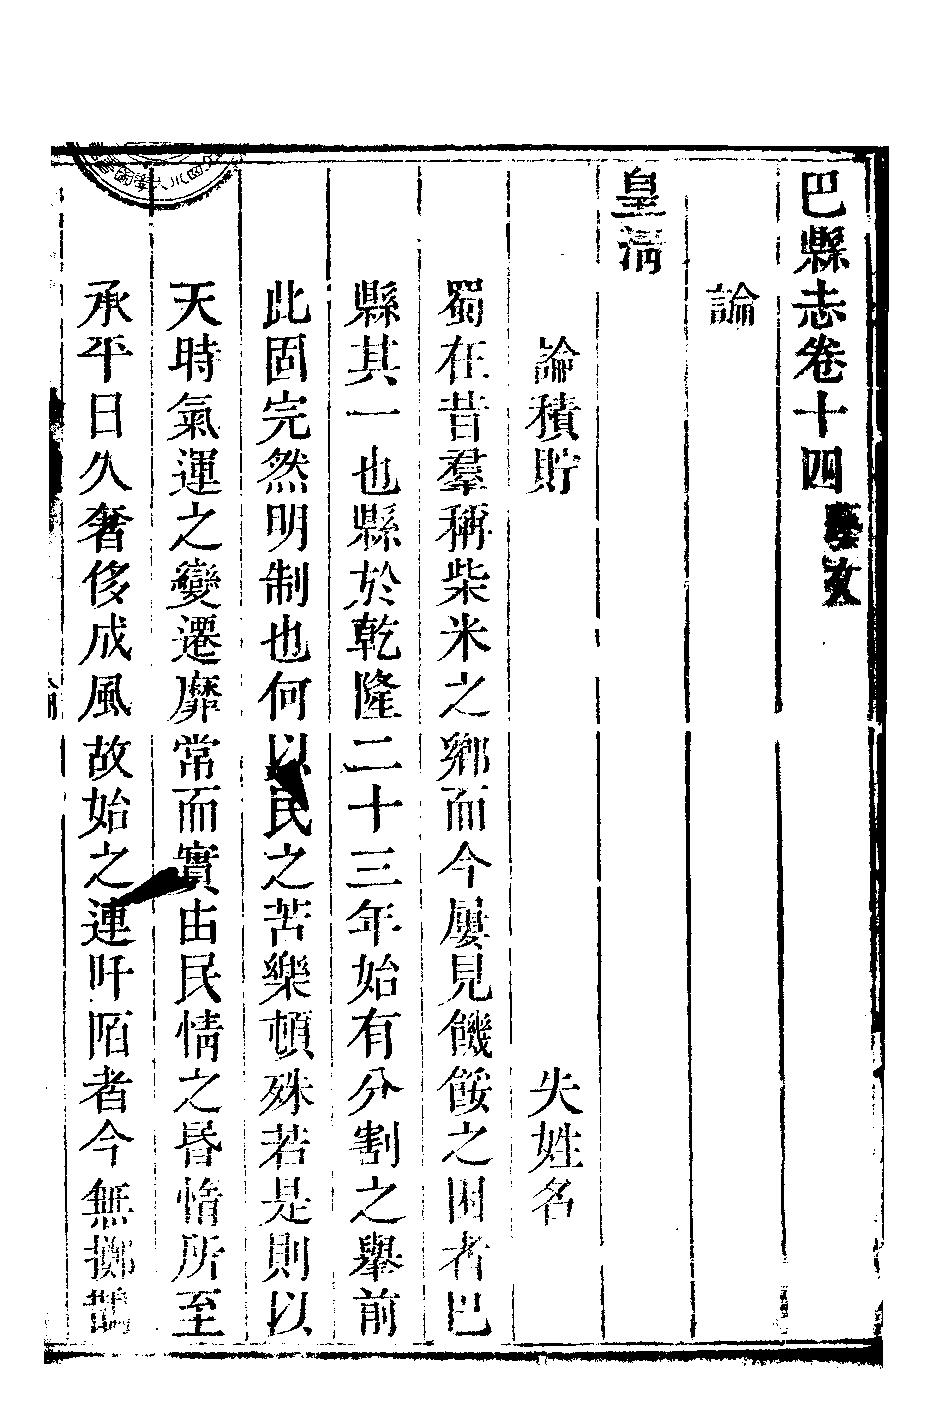 巴縣志卷十四藝文
論
皇淸
論積貯
失姓名
蜀在昔羣稱柴米之鄉而今屢見饑餒之困者巴
縣其一也縣於乾隆二十三年始有分割之舉前
此固完然明制也何以民之苦樂頓殊若是則以
天時氣運之變遷靡常而實由民情之昏惰所至
承平日久奢侈成風故始之連阡陌者今無擲鵲